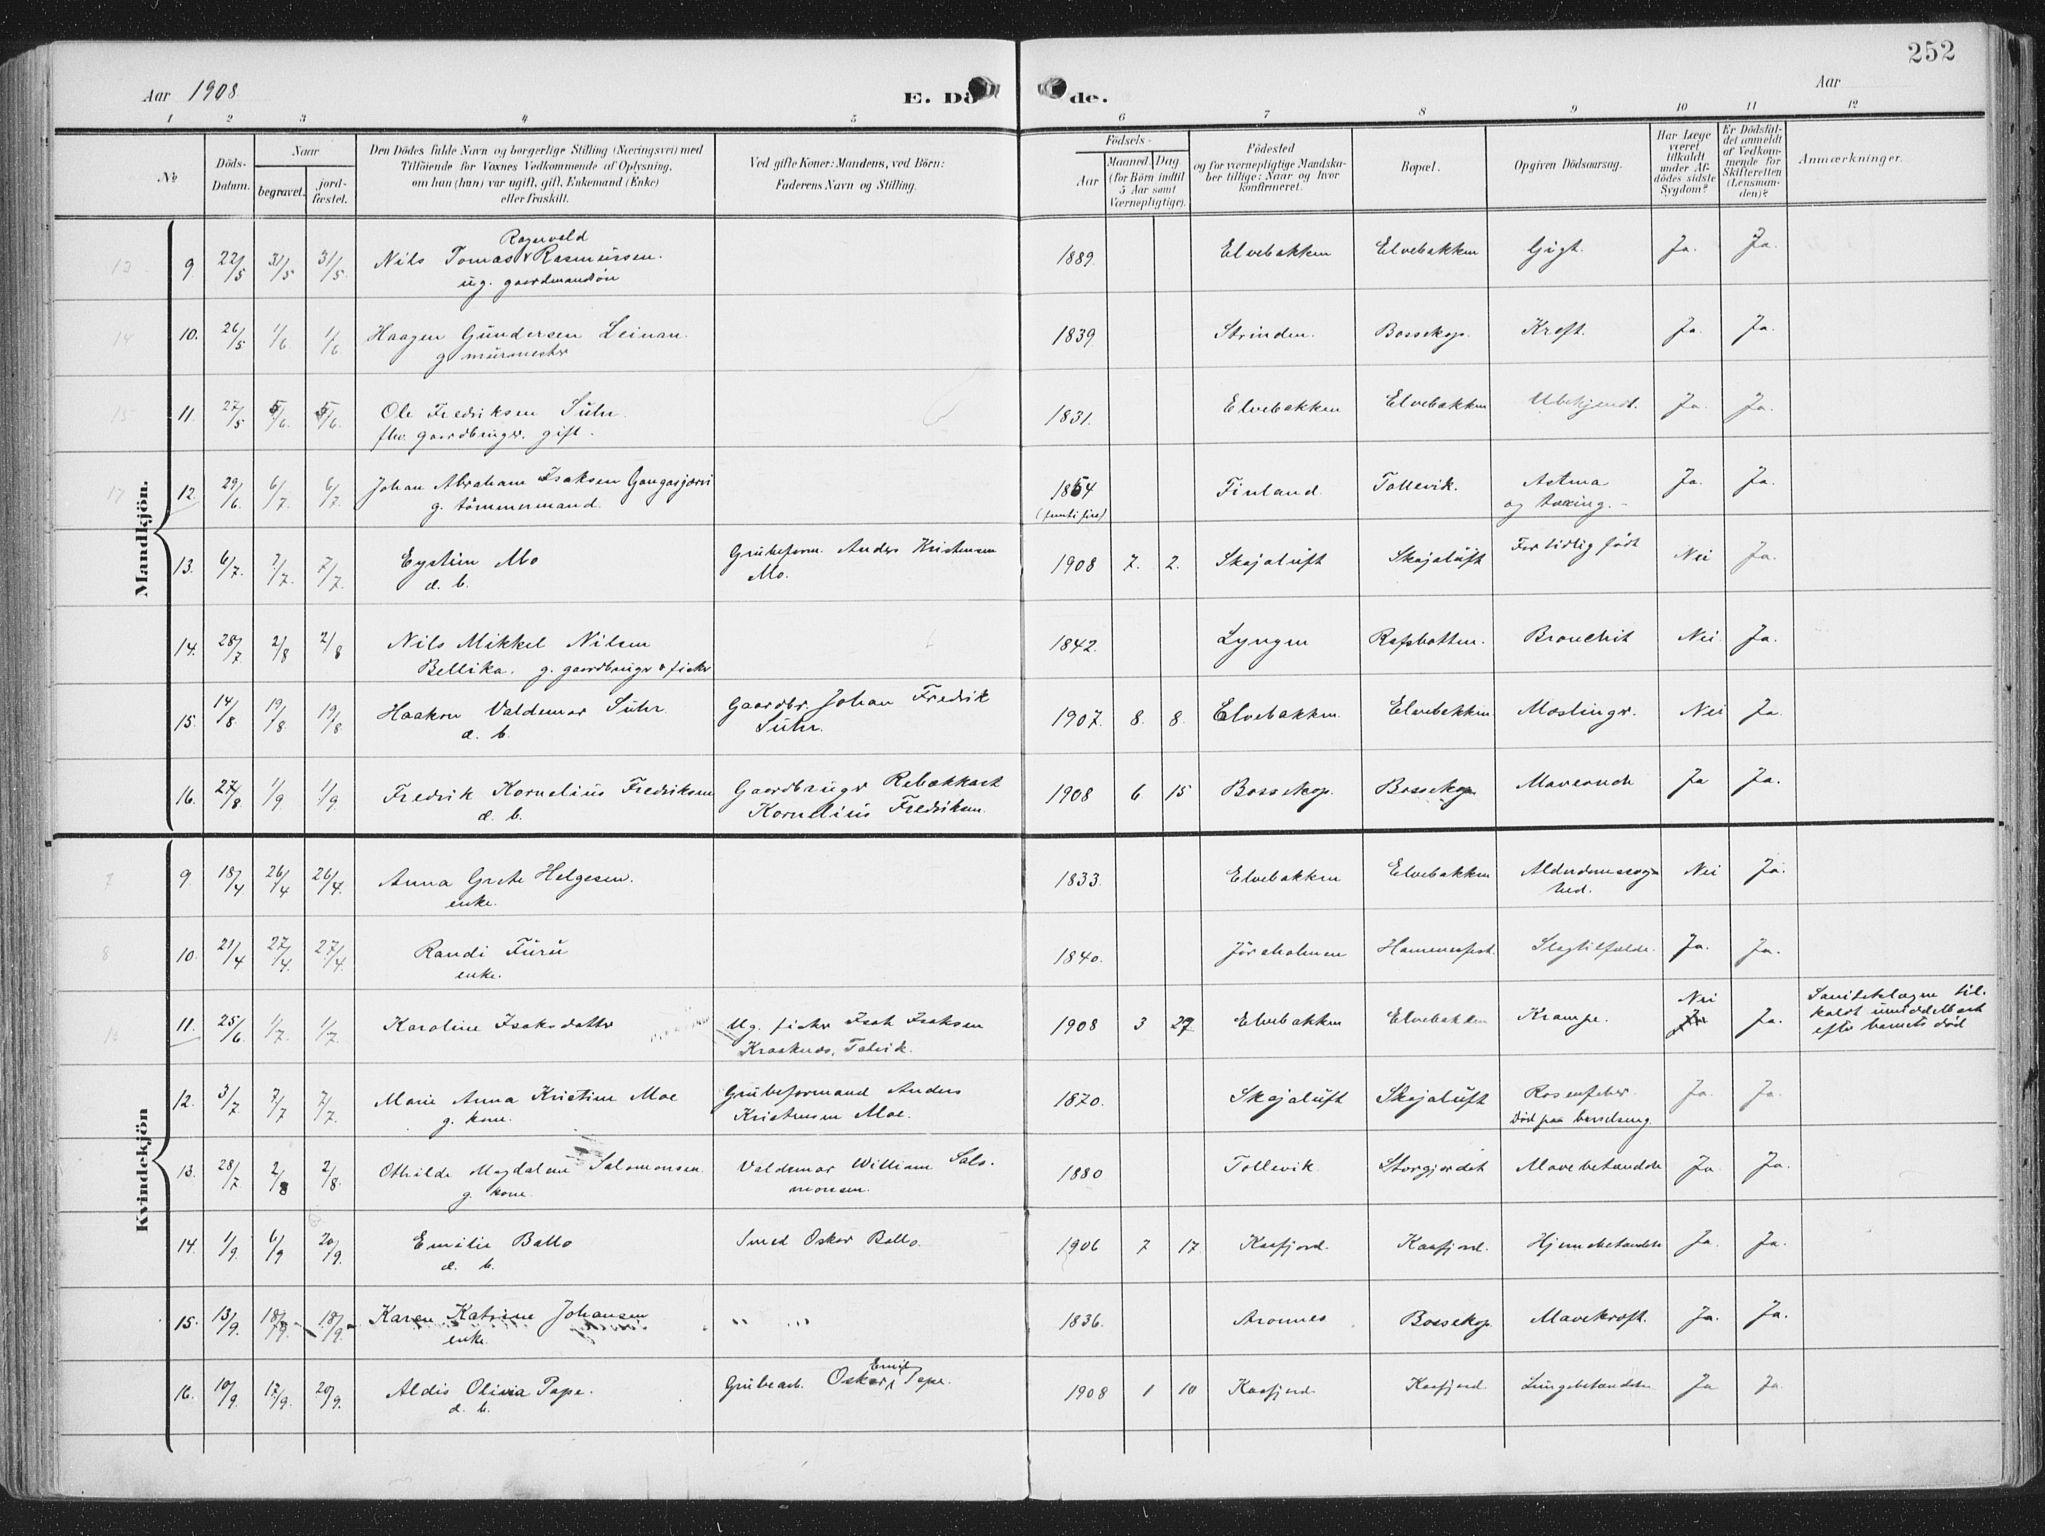 252
Aar 1908
E. Dö de.
Aar
1 2 3 4 5 6 7 8 9 10 11 12
No
Döds-Datum.
Naar
begravet.
jord-fæstet.
Den Dödes fulde Navn og borgerlige Stilling (Næringsvei) med
Tilföiende for Voxnes Vedkommende af Oplysning,
om han (hun) var ugift, gift, Enkemand (Enke)
eller fraskilt.
Ved gifte Koner: Mandens, ved Börn:
Faderens Navn og Stilling.
Födsels-
Aar
Maaned. Dag
(for Börn indtil
5 Aar samt
Værnepligtige).
Födested
og for værnepligtige Mandska-
ber tillige: Naar og hvor
konfirmeret.
Bopæl.
Opgiven Dödsaarsag.
Har Læge
været
tilkaldt
under Af-
dödes sidste
Sygdom?
Er Dödsfal-
det anmeldt
af Vedkom-
mende for
Skifteretten
(Lensman-
den)?
Anmærkninger.
Mandkjön.
13 9 22/5 31/5 31/5 Nils Tomas Ragnvald Rasmussen. 1889. Elvebakken Elvebakken Gigt. Ja. Ja.
ug. gaardmandsön
14 10. 26/5 1/6 1/6 Haagen Gundersen Leinan. 1839 Strinden. Bossekop. Kreft. Ja. Ja.
g. murmester
15 11. 27/5 5/6 5/6 Ole Fredriksen Suhr. 1831. Elvebakken Elvebakken Ubekjendt. Ja. Ja.
fhv. gaardbruger. gift.
17 12. 29/6 6/7 6/7 Johan Abraham Isaksen Gangasjærvi 1854 Finland. Tollevik. Astma Ja. Ja.
g. tömmermand. (femti fire) og tæring.
13. 6/7. 7/7. 7/7. Eystein Mo Grubeform. Anders Kristensen 1908 7. 2. Skajaluft Skajaluft For tidlig födt Nei Ja.
d. b. Mo.
14. 28/7 2/8 2/8 Nils Mikkel Nilsen 1842. Lyngen Rafsbotten. Bronchit Nei Ja.
Bellika. g. gaardbruger & fisker
15. 14/8 19/8 19/8 Haakon Valdemar Suhr. Gaardbr. Johan Fredrik 1907. 8. 8. Elvebakken. Elvebakken Mæslinger. Nei Ja.
d. b. Suhr.
16. 27/8 1/9 1/9 Fredrik Kornelius Fredriksen Gaardbruger Rebækkart 1908 6 15 Bossekop. Bossekop Maveonde Ja Ja.
d. b. Kornelius Fredriksen.
Kvindekjön
7 9 18/4 26/4 26/4. Anna Grete Helgesen. 1833. Elvebakken Elvebakken Alderdomssvag- Nei Ja.
enke. hed.
8 10. 21/4 27/4. 27/4. Randi Furu 1840. Jöraholmen Hammerfest. Slagtilfælde. Ja. Ja.
enke.
11. 25/6 1/7. 1/7. Karoline Isaksdatter Ug. fisker Isak Isaksen 1908 3 27 Elvebakken Elvebakken Krampe. Nei Ja. Sanitetslægen til-
Kraakenes, Talvik. kaldt umiddelbart
efter barnets död
12. 3/7. 7/7 7/7. Marie Anna Kristine Moe Grubeformand Anders 1870. Skajaluft Skajaluft Rosenfeber Ja. Ja.
g. kone. Kristensen Moe. Död paa barselseng.
13. 28/7 2/8 2/8. Othilde Magdalene Salomonsen Valdemar William Salo- 1880 Tollevik Storgjerdet Mavebetændelse Ja. Ja.
g. kone. monsen.
14. 1/9. 6/9 20/9. Emilie Ballo Smed Oskar Ballo. 1906 7 17. Kaafjord. Kaafjord. Hjernebetændelse Ja. Ja.
d. b.
15. 13/9. 18/9. 18/9. Karen Katrine Johansen " " 1836. Aronnes Bossekop. Mavekræft. Ja. Ja.
enke.
16. 10/9. 17/9. 20/9. Aldis Olivia Pape. Grubearb. Oskar Emil Pape. 1908 1 10 Kaafjord Kaafjord. Lungebetændelse Ja Ja.
d. b.